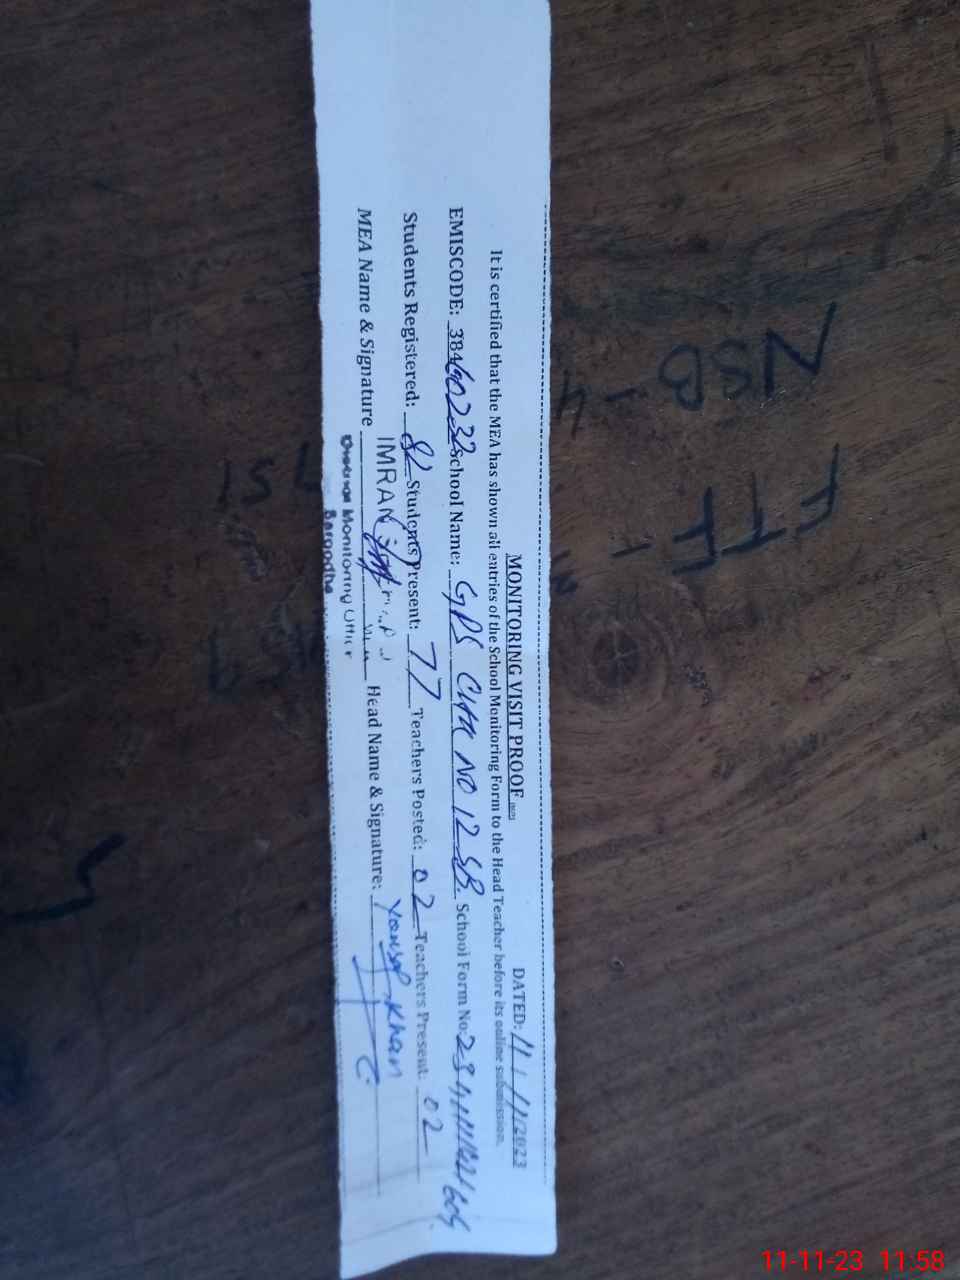 MONITORING VISIT PROOF
DATED: 11/11/2023
It is certified that the MEA has shown all entries of the School Monitoring Form to the Head Teacher before its online submission.
EMISCODE: 38460232 School Name: GPS CHK NO 12 SB. School Form No:
Students Registered: 81 Students Present: 77 Teachers Posted: 02 Teachers Present: 02
MEA Name & Signature IMRAN Head Name & Signature: Yousaf Khan
Monitoring Officer
Sargodha
NSB - 4
FTF -
11-11-23 11:58